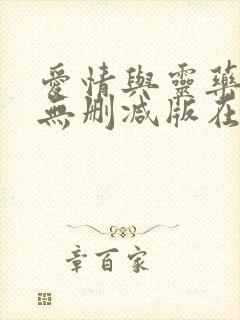 愛情與靈藥
無刪減版在
章百家